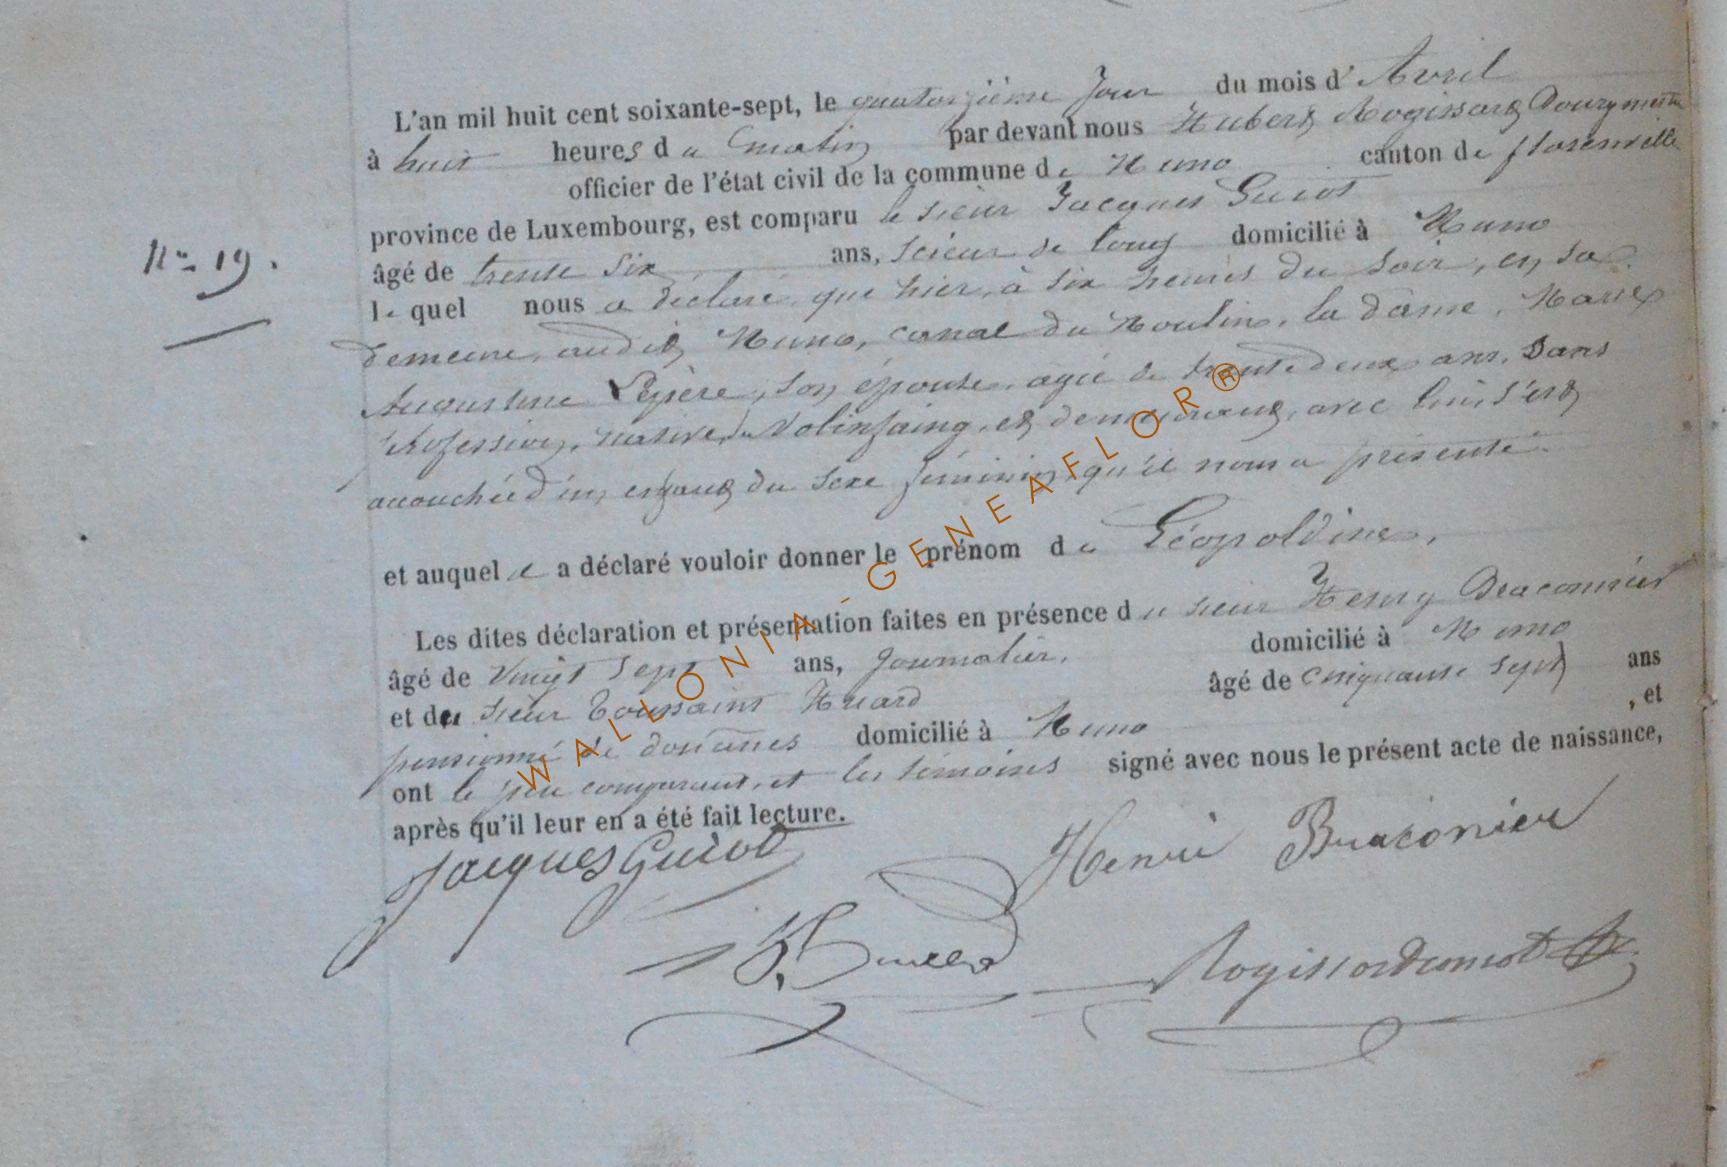 L'an mil huit cent soixante-sept, le quatorzième jour du mois d' Avril
à huit heures du matin par devant nous Hubert Rogissart Bourgmestre
officier de l'état civil de la commune de Muno canton de florenville
province de Luxembourg, est comparu le sieur Jacques Guiot
âgé de trente six ans, scieur de long domicilié à Muno
N° 19.
lequel nous a déclaré, que hier, à six heures du soir, en sa
demeure, audit Muno, canal du Moulin, la dame, Marie
Augustine Lepère, son épouse, agée de trente deux ans, Sans
Profession, native, de Volinfaing, et demeurant, avec lui, s'est
accouchée d'un enfant du sexe féminin, qu'il nous a présenté.
et auquel il a déclaré vouloir donner le prénom de Léopoldine,
Les dites déclaration et présentation faites en présence du sieur Henry Braconnier
âgé de vingt sept ans, journalier, domicilié à Muno
et du sieur Toussaint Huard âgé de cinquante sept ans
pensionné de douanes domicilié à Muno , et
ont le père comparant, et les témoins signé avec nous le présent acte de naissance,
après qu'il leur en a été fait lecture.
Jacques Guiot
Henri Braconier
WALLONIA-GENEAFLOR®